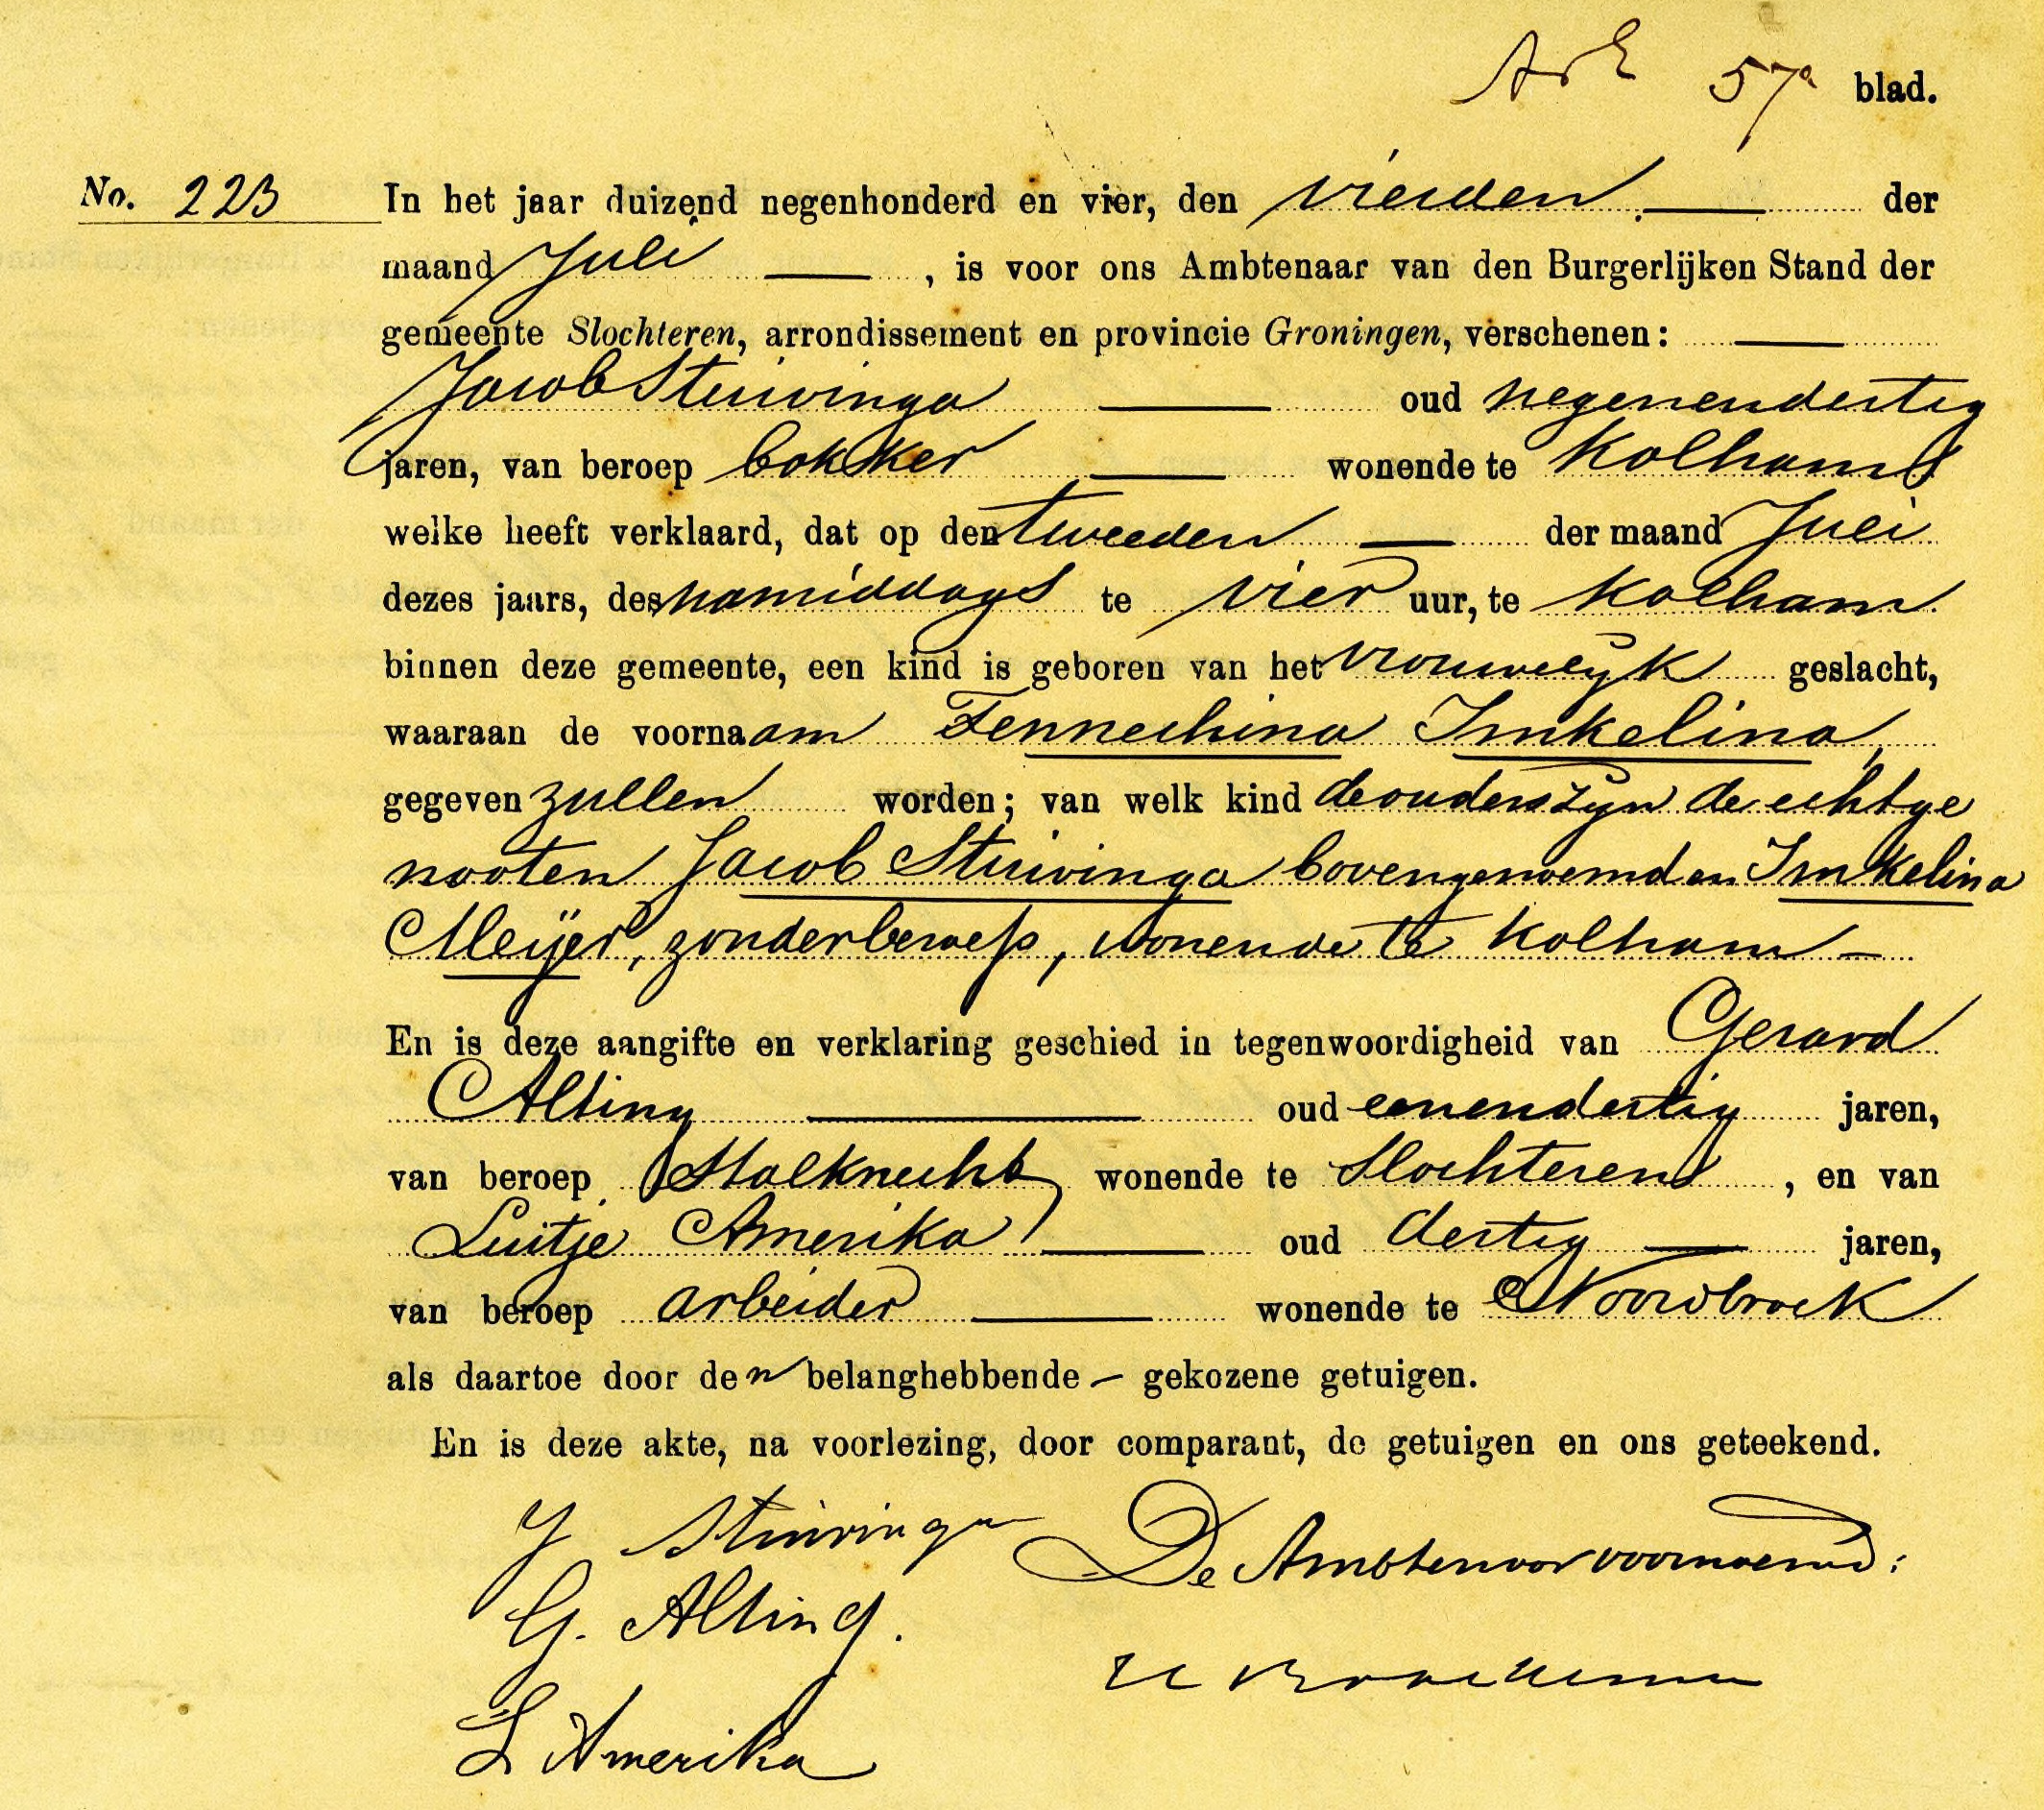 57e blad.
No. 223 In het jaar duizend negenhonderd en vier, den vierden der
maand Juli, is voor ons Ambtenaar van den Burgerlijken Stand der
gemeente Slochteren, arrondissement en provincie Groningen, verschenen:
Jacob Stuivinga oud negenendertig
jaren, van beroep bakker wonende te Kolham
welke heeft verklaard, dat op den tweeden der maand Juli
dezes jaars, des namiddags te vier uur, te Kolham
binnen deze gemeente, een kind is geboren van het vrouwelijk geslacht,
waaraan de voornaam Fennechina Imkelina,
gegeven zullen worden; van welk kind de ouders zijn de echtge
nooten Jacob Stuivinga bovengenoemd en Imkelina
Meijer, zonder beroep, wonende te Kolham —
En is deze aangifte en verklaring geschied in tegenwoordigheid van Gerard
Alting oud eenendertig jaren,
van beroep Stalknecht, wonende te Slochteren, en van
Luitje Amerika oud dertig jaren,
van beroep arbeider wonende te Noordbroek
als daartoe door den belanghebbende – gekozene getuigen.
En is deze akte, na voorlezing, door comparant, de getuigen en ons geteekend.
J Stuivinga
De Ambtenaar voornoemd:
G. Alting.
L Amerika